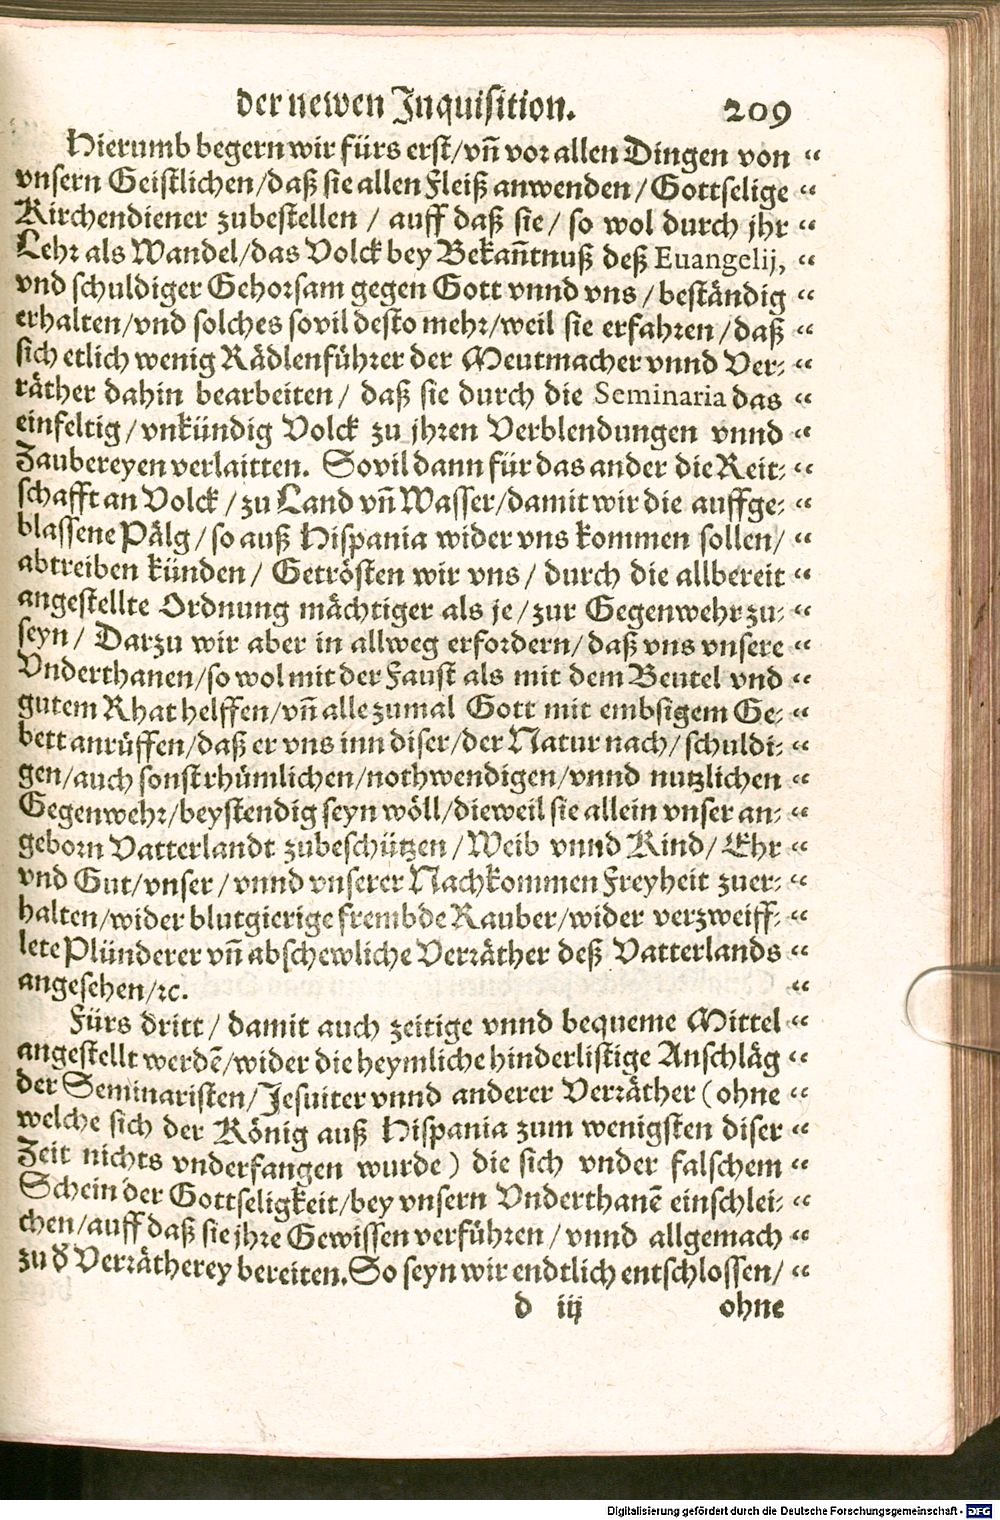 der newen Inquisition. 209
Hierumb begern wir fürs erst/vñ vor allen Dingen von “
vnsern Geistlichen/daß sie allen Fleiß anwenden/Gottselige “
Kirchendiener zubestellen / auff daß sie/ so wol durch jhr “
Lehr als Wandel/das Volck bey Bekañtnuß deß Euangelij, “
vnd schuldiger Gehorsam gegen Gott vnnd vns/ beständig “
erhalten/vnd solches sovil desto mehr/weil sie erfahren/daß “
sich etlich wenig Rädlenführer der Meutmacher vnnd Ver- “
räther dahin bearbeiten/ daß sie durch die Seminaria das “
einfeltig/vnkündig Volck zu jhren Verblendungen vnnd “
Zaubereyen verlaitten. Sovil dann für das ander die Reit- “
schafft an Volck/zu Land vñ Wasser/damit wir die auffge- “
blassene Pälg/so auß Hispania wider vns kommen sollen/ “
abtreiben künden/ Getrösten wir vns/ durch die allbereit “
angestellte Ordnung mächtiger als je/zur Gegenwehr zu- “
seyn/ Darzu wir aber in allweg erfordern/daß vns vnsere “
Vnderthanen/so wol mit der Faust als mit dem Beutel vnd “
gutem Rhat helffen/vñ alle zumal Gott mit embsigem Ge- “
bett anrüffen/daß er vns inn diser/der Natur nach/schuldi- “
gen/auch sonst rhümlichen/nothwendigen/vnnd nutzlichen “
Gegenwehr/beystendig seyn wöll/dieweil sie allein vnser an- “
geborn Vatterlandt zubeschützen/Weib vnnd Kind/ Ehr “
vnd Gut/vnser/vnnd vnserer Nachkommen Freyheit zuer- “
halten/wider blutgierige frembde Rauber/wider verzweiff- “
lete Plünderer vñ abschewliche Verräther deß Vatterlands “
angesehen/ꝛc. “
Fürs dritt/ damit auch zeitige vnnd bequeme Mittel “
angestellt werdẽ/wider die heymliche hinderlistige Anschläg “
der Seminaristen/Jesuiter vnnd anderer Verräther (ohne “
welche sich der König auß Hispania zum wenigsten diser “
Zeit nichts vnderfangen wurde) die sich vnder falschem “
Schein der Gottseligkeit/bey vnsern Vnderthanẽ einschlei- “
chen/auff daß sie jhre Gewissen verführen/vnnd allgemach “
zu d̃ Verrätherey bereiten. So seyn wir endtlich entschlossen/ “
d iij ohne
Digitalisierung gefördert durch die Deutsche Forschungsgemeinschaft - DFG